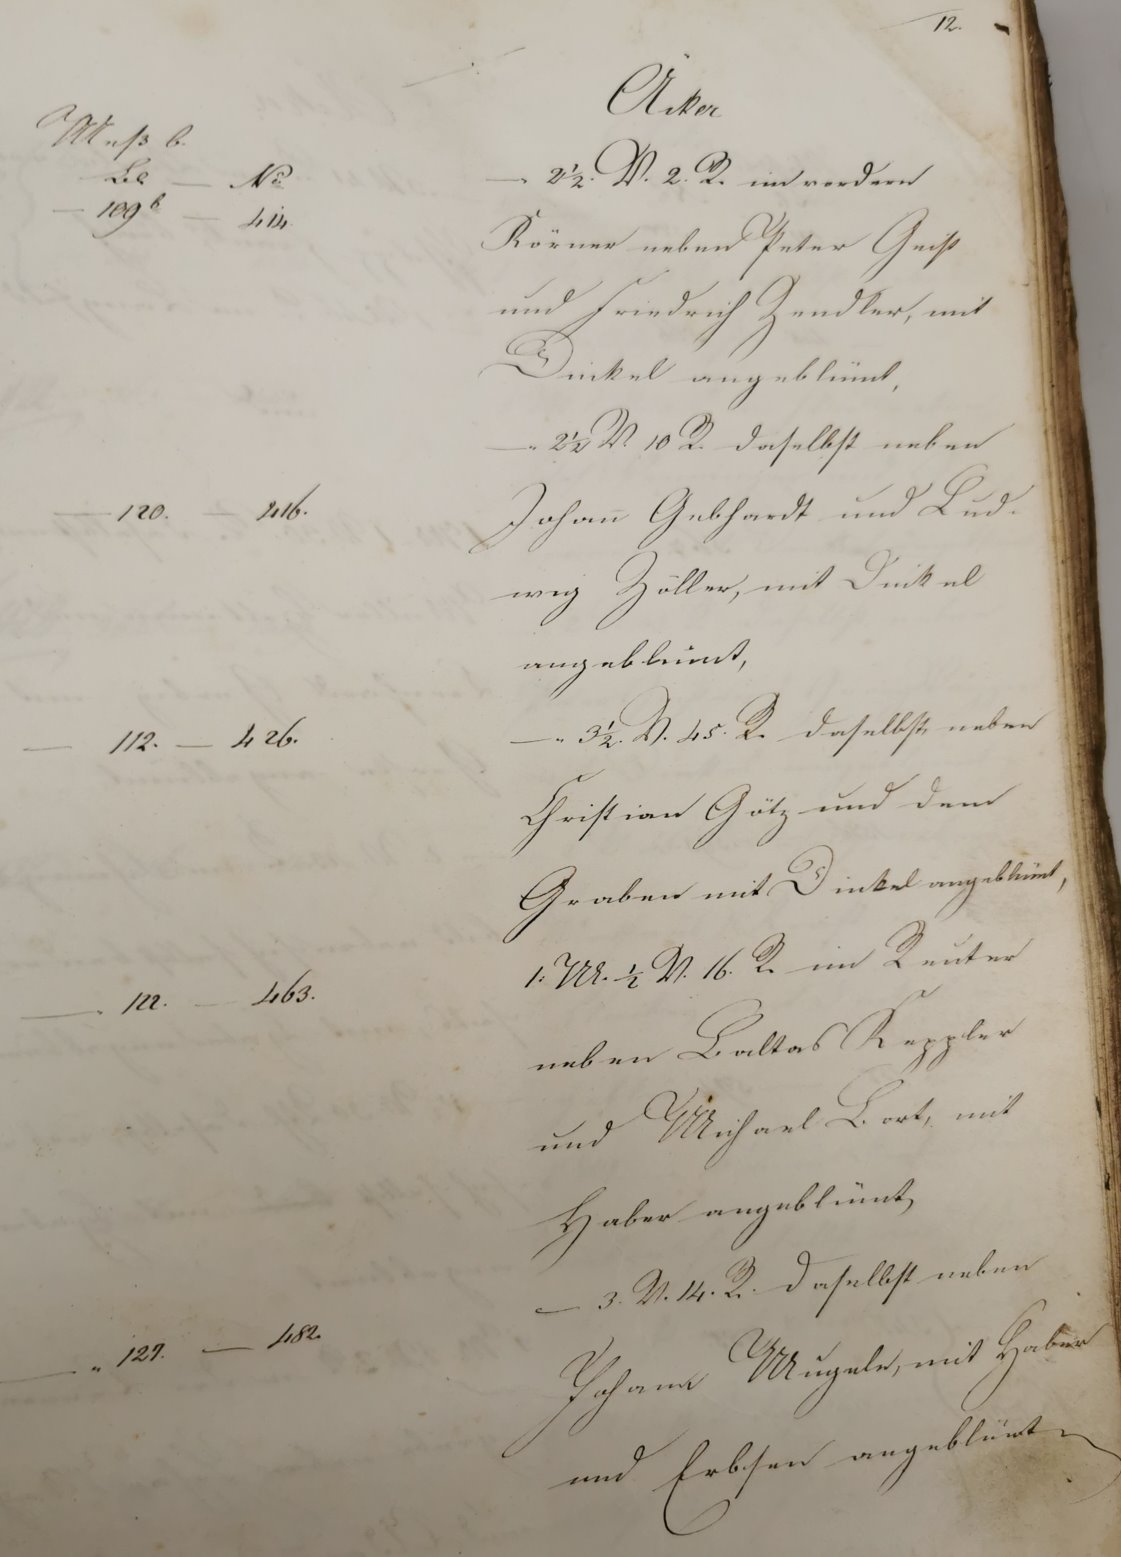 12.
Äcker
Meß b.
Bl — No
— 109b — 414.
—. 2½. V. 2. R. im vordern
Körner neben Peter Geist
und Friedrich Zendler, mit
Dinkel angeblümt,
—. 2½ V. 10 R. daselbst neben
— 120. — 416.
Johann Gebhardt und Lud-
wig Zöller, mit Dinkel
angeblümt,
— 112. — 426.
—. 3½. V. 45. R. daselbst neben
Christian Götz und dem
Graben mit Dinkel angeblümt,
1. M. ½ V. 16. R. im Reuter
—. 122. — 463.
neben Baltas Keppler
und Michael Bort, mit
Haber angeblümt,
— 3. V. 14. R. daselbst neben
—„ 127. — 482.
Johann Mugele, mit Haber
und Erbsen angeblümt